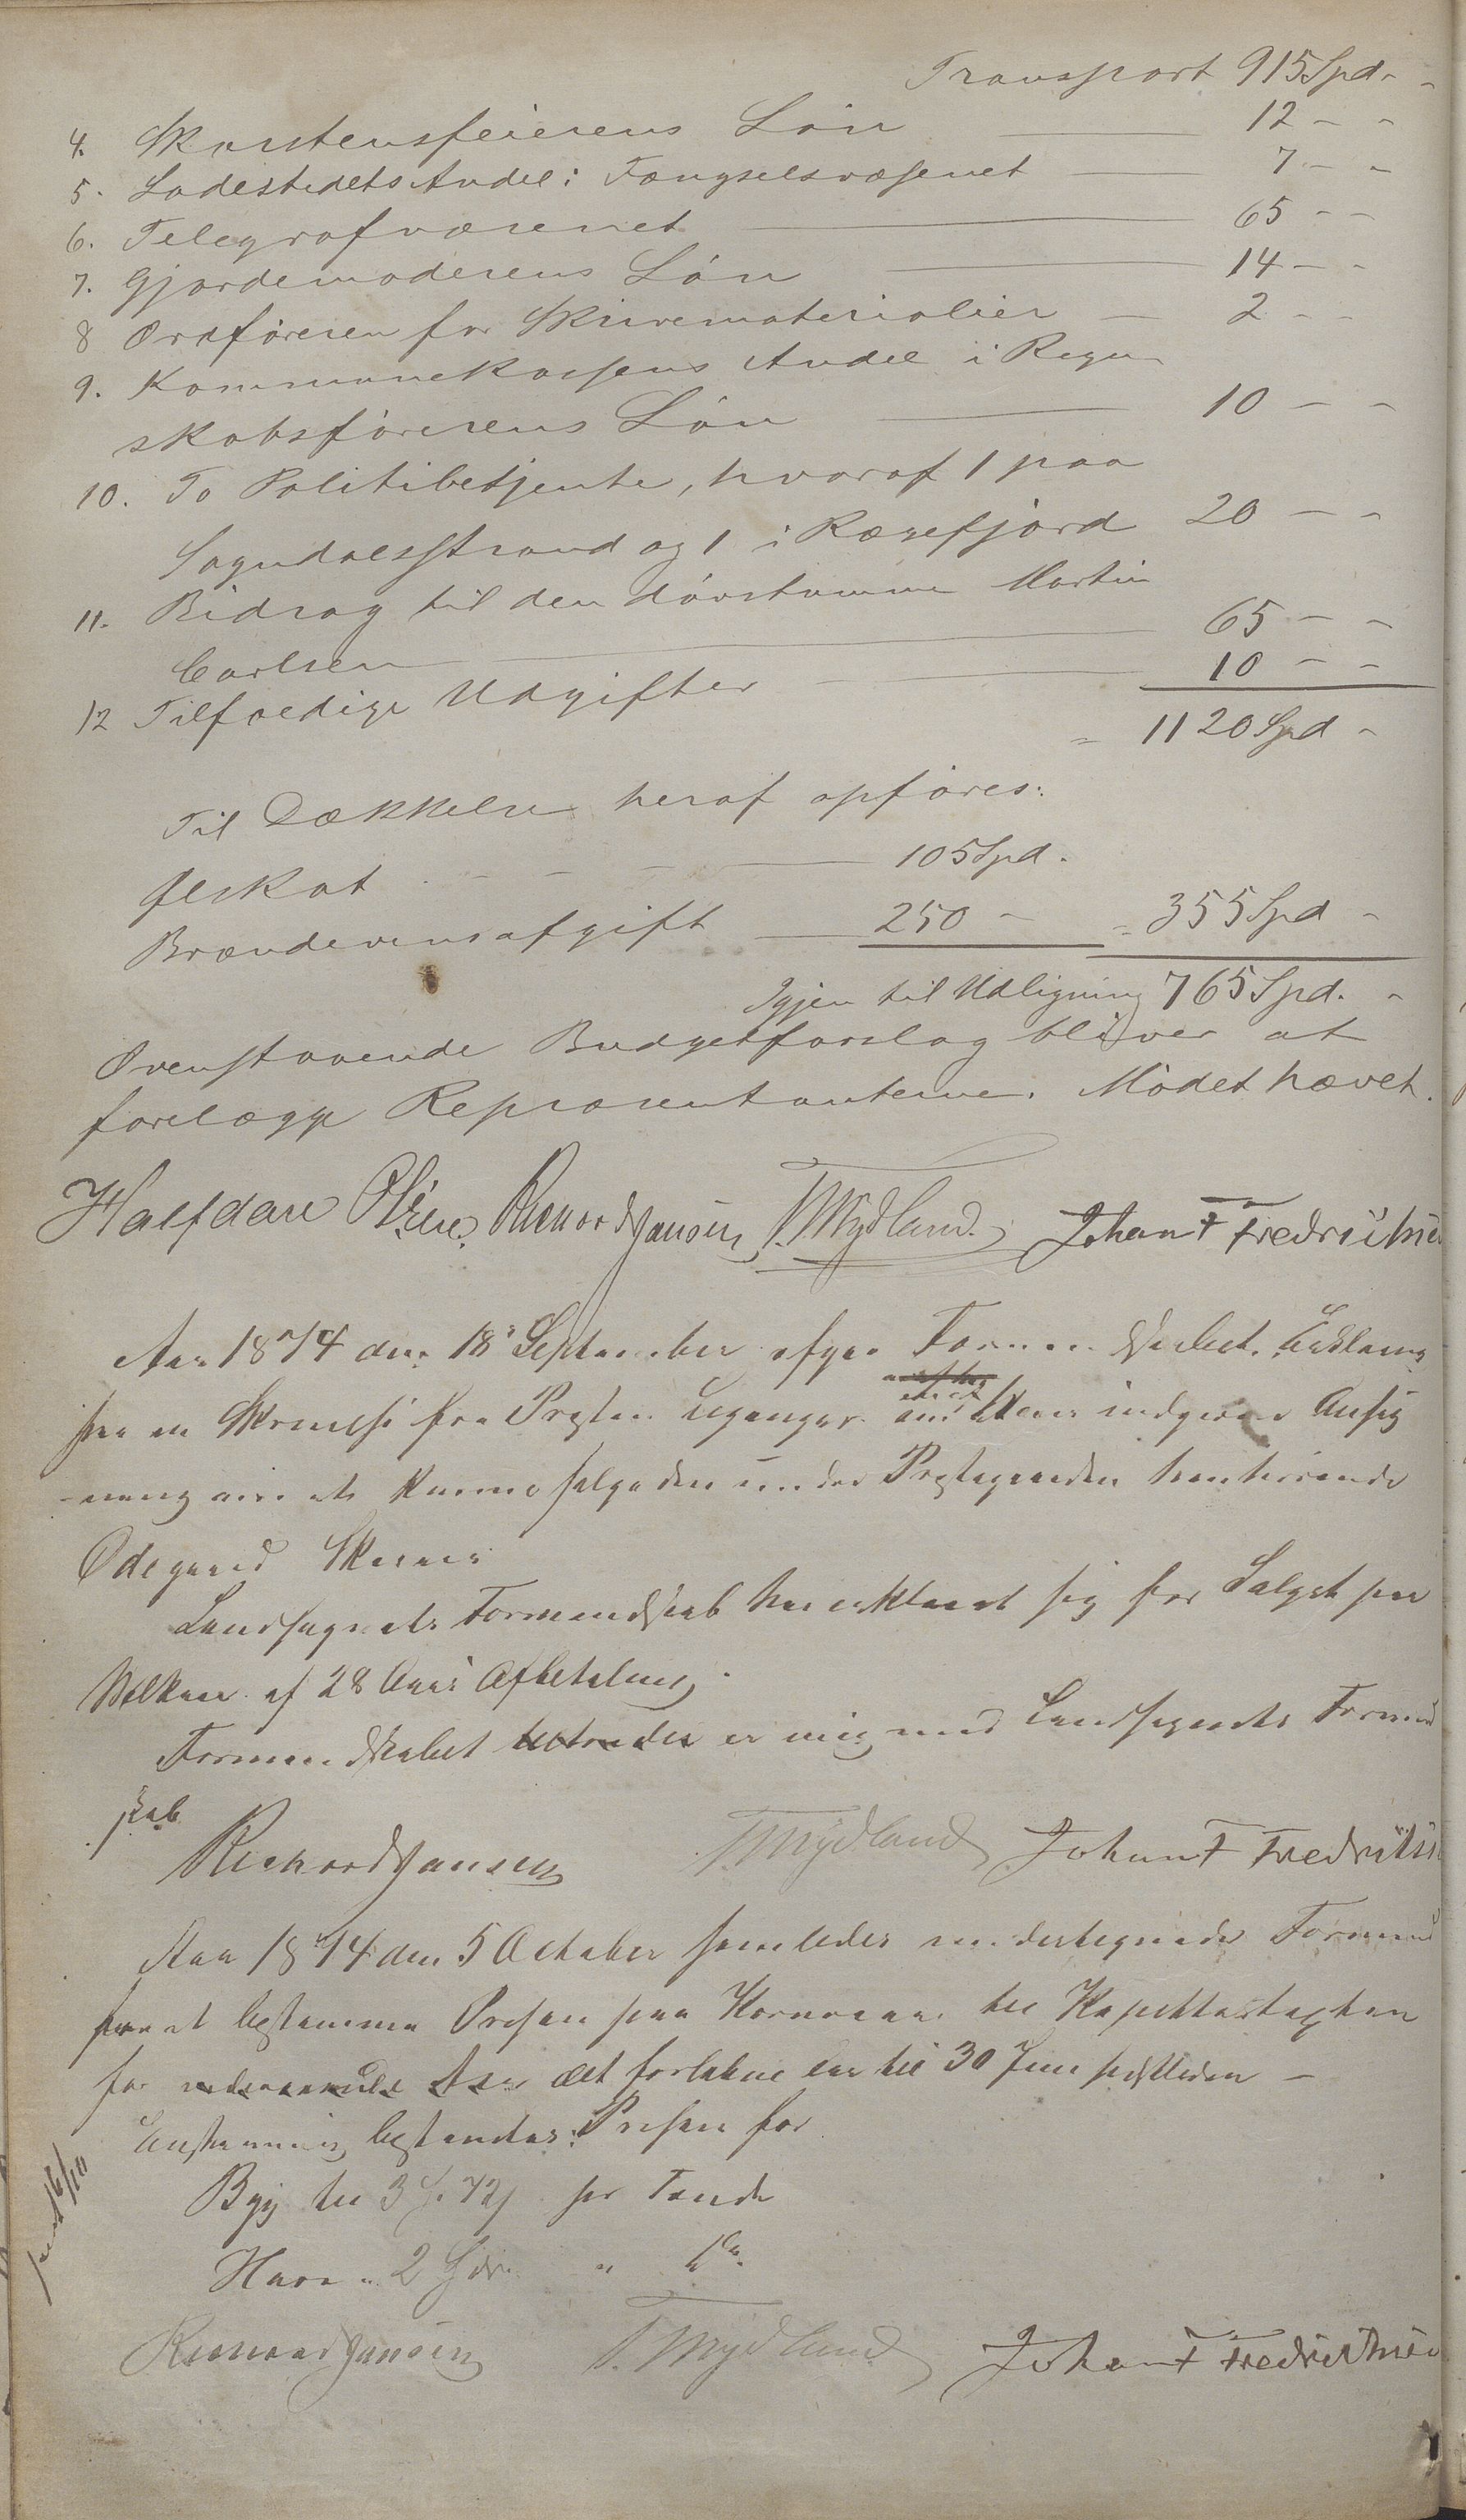 Transport 915 Spd - -
4. Skorstensfeierens Lön 12 - -
5. Ladestedets Andel i Fængselsvæsenet 7 - -
6. Telegrafvæsenet 65 - -
7. Gjordemoderens Lön 14 - -
8 Ordföreren for Skrivematerialier 2 - -
9. Kommunekassens Andel i Regn-
skabsförerens Lön 10 - -
10. To Politibetjente, hvoraf 1 paa
Sogndalsstrand og 1 i Rægefjord 20 - -
11. Bidrag til den dövstumme Martin
Carlsen 65 - -
12 Tilfældige Udgifter 10 - -
= 1120 Spd -
Til Dækkelse heraf opföres:
Ölskat 105 Spd.
Brændevinsafgift 250 - = 355 Spd -
Igjen til Udligning 765 Spd. -
Ovenstaaende Budgetforslag bliver at
forelægge Repræsentanterne. Mödet hævet.
Halfdan Olsen. Richard Jansen T. Mydland. Johan F Fredriksen
Aar 1874 den 18 September afgav Formandskabet Erklæring
paa en Skrivelse fra Presten indgivne Ansøg
-ning om at kunne sælge den under Prestegaarden henhørende
Ödegaard
Landsognets Formandskab har erklæret sig for Salget paa
Vilkaar af 28 Aars Afbetaling.
Formandskabet betræder er enig med Landsognets Formand
skab
Richard Jansen T. Mydland Johan F Fredriksen
Aar 1874 den 5 October samledes undertegnede Formænd
for at bestemme Prisen paa Kornvarer til Kapitelstaxten
for nærværende Aar det forløbne Aar til 30 Juni sidstleden -
Enstemmig bestemtes: Prisen for
Byg til 3 Spd. 72 s pr Tønde
Havre " 2 Spd. " do.
Richard Jansen T. Mydland Johan F Fredriksen